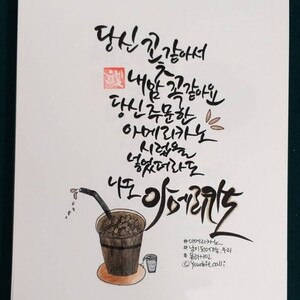 당신 꽃같아서
내맘 꼭같아요
당신 주문한
아메리카노
시럽을
넣었더라도
나도 아메리카노
#아메리카노